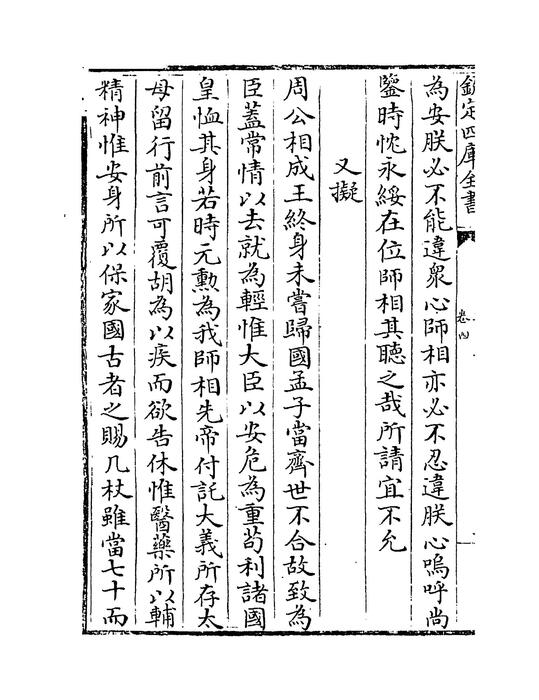 欽定四庫全書
卷四
為安朕必不能違衆心師相亦必不忍違朕心嗚呼尚
鑒時忱永綏在位師相其聽之哉所請宜不允
又擬
周公相成王終身未嘗歸國孟子當齊世不合故致為
臣蓋常情以去就為輕惟大臣以安危為重苟利諸國
皇恤其身若時元勲為我師相先帝付託大義所存太
母留行前言可覆胡為以疾而欲告休惟醫藥所以輔
精神惟安身所以保家國古者之賜几杖雖當七十而